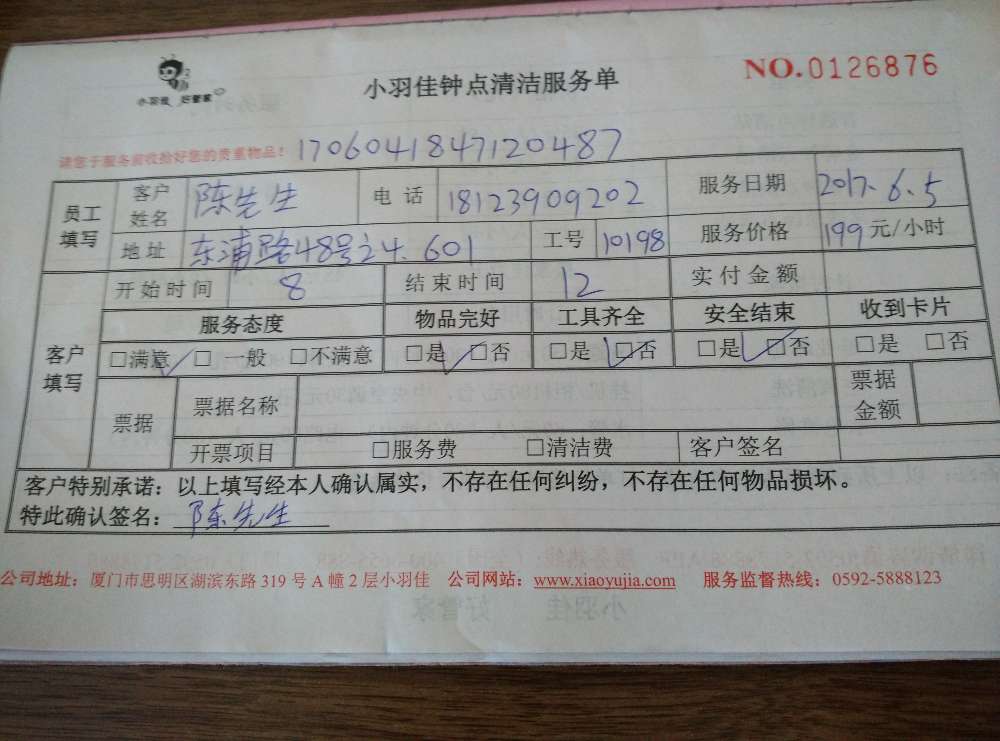 小羽佳 好管家
小羽佳钟点清洁服务单
NO.0126876
请您于服务前收拾好您的贵重物品！ 1706041847120487
员工填写 客户姓名 陈先生 电话 18123909202 服务日期 2017.6.5
地址 东浦路48号之4.601 工号 10198 服务价格 199元/小时
客户填写 开始时间 8 结束时间 12 实付金额
服务态度 物品完好 工具齐全 安全结束 收到卡片
□满意 □一般 □不满意 □是 □否 □是 □否 □是 □否 □是 □否
票据 票据名称 票据金额
开票项目 □服务费 □清洁费 客户签名
客户特别承诺：以上填写经本人确认属实，不存在任何纠纷，不存在任何物品损坏。
特此确认签名：陈先生
公司地址：厦门市思明区湖滨东路 319 号 A 幢 2 层小羽佳 公司网站：www.xiaoyujia.com 服务监督热线：0592-5888123
小羽佳 好管家